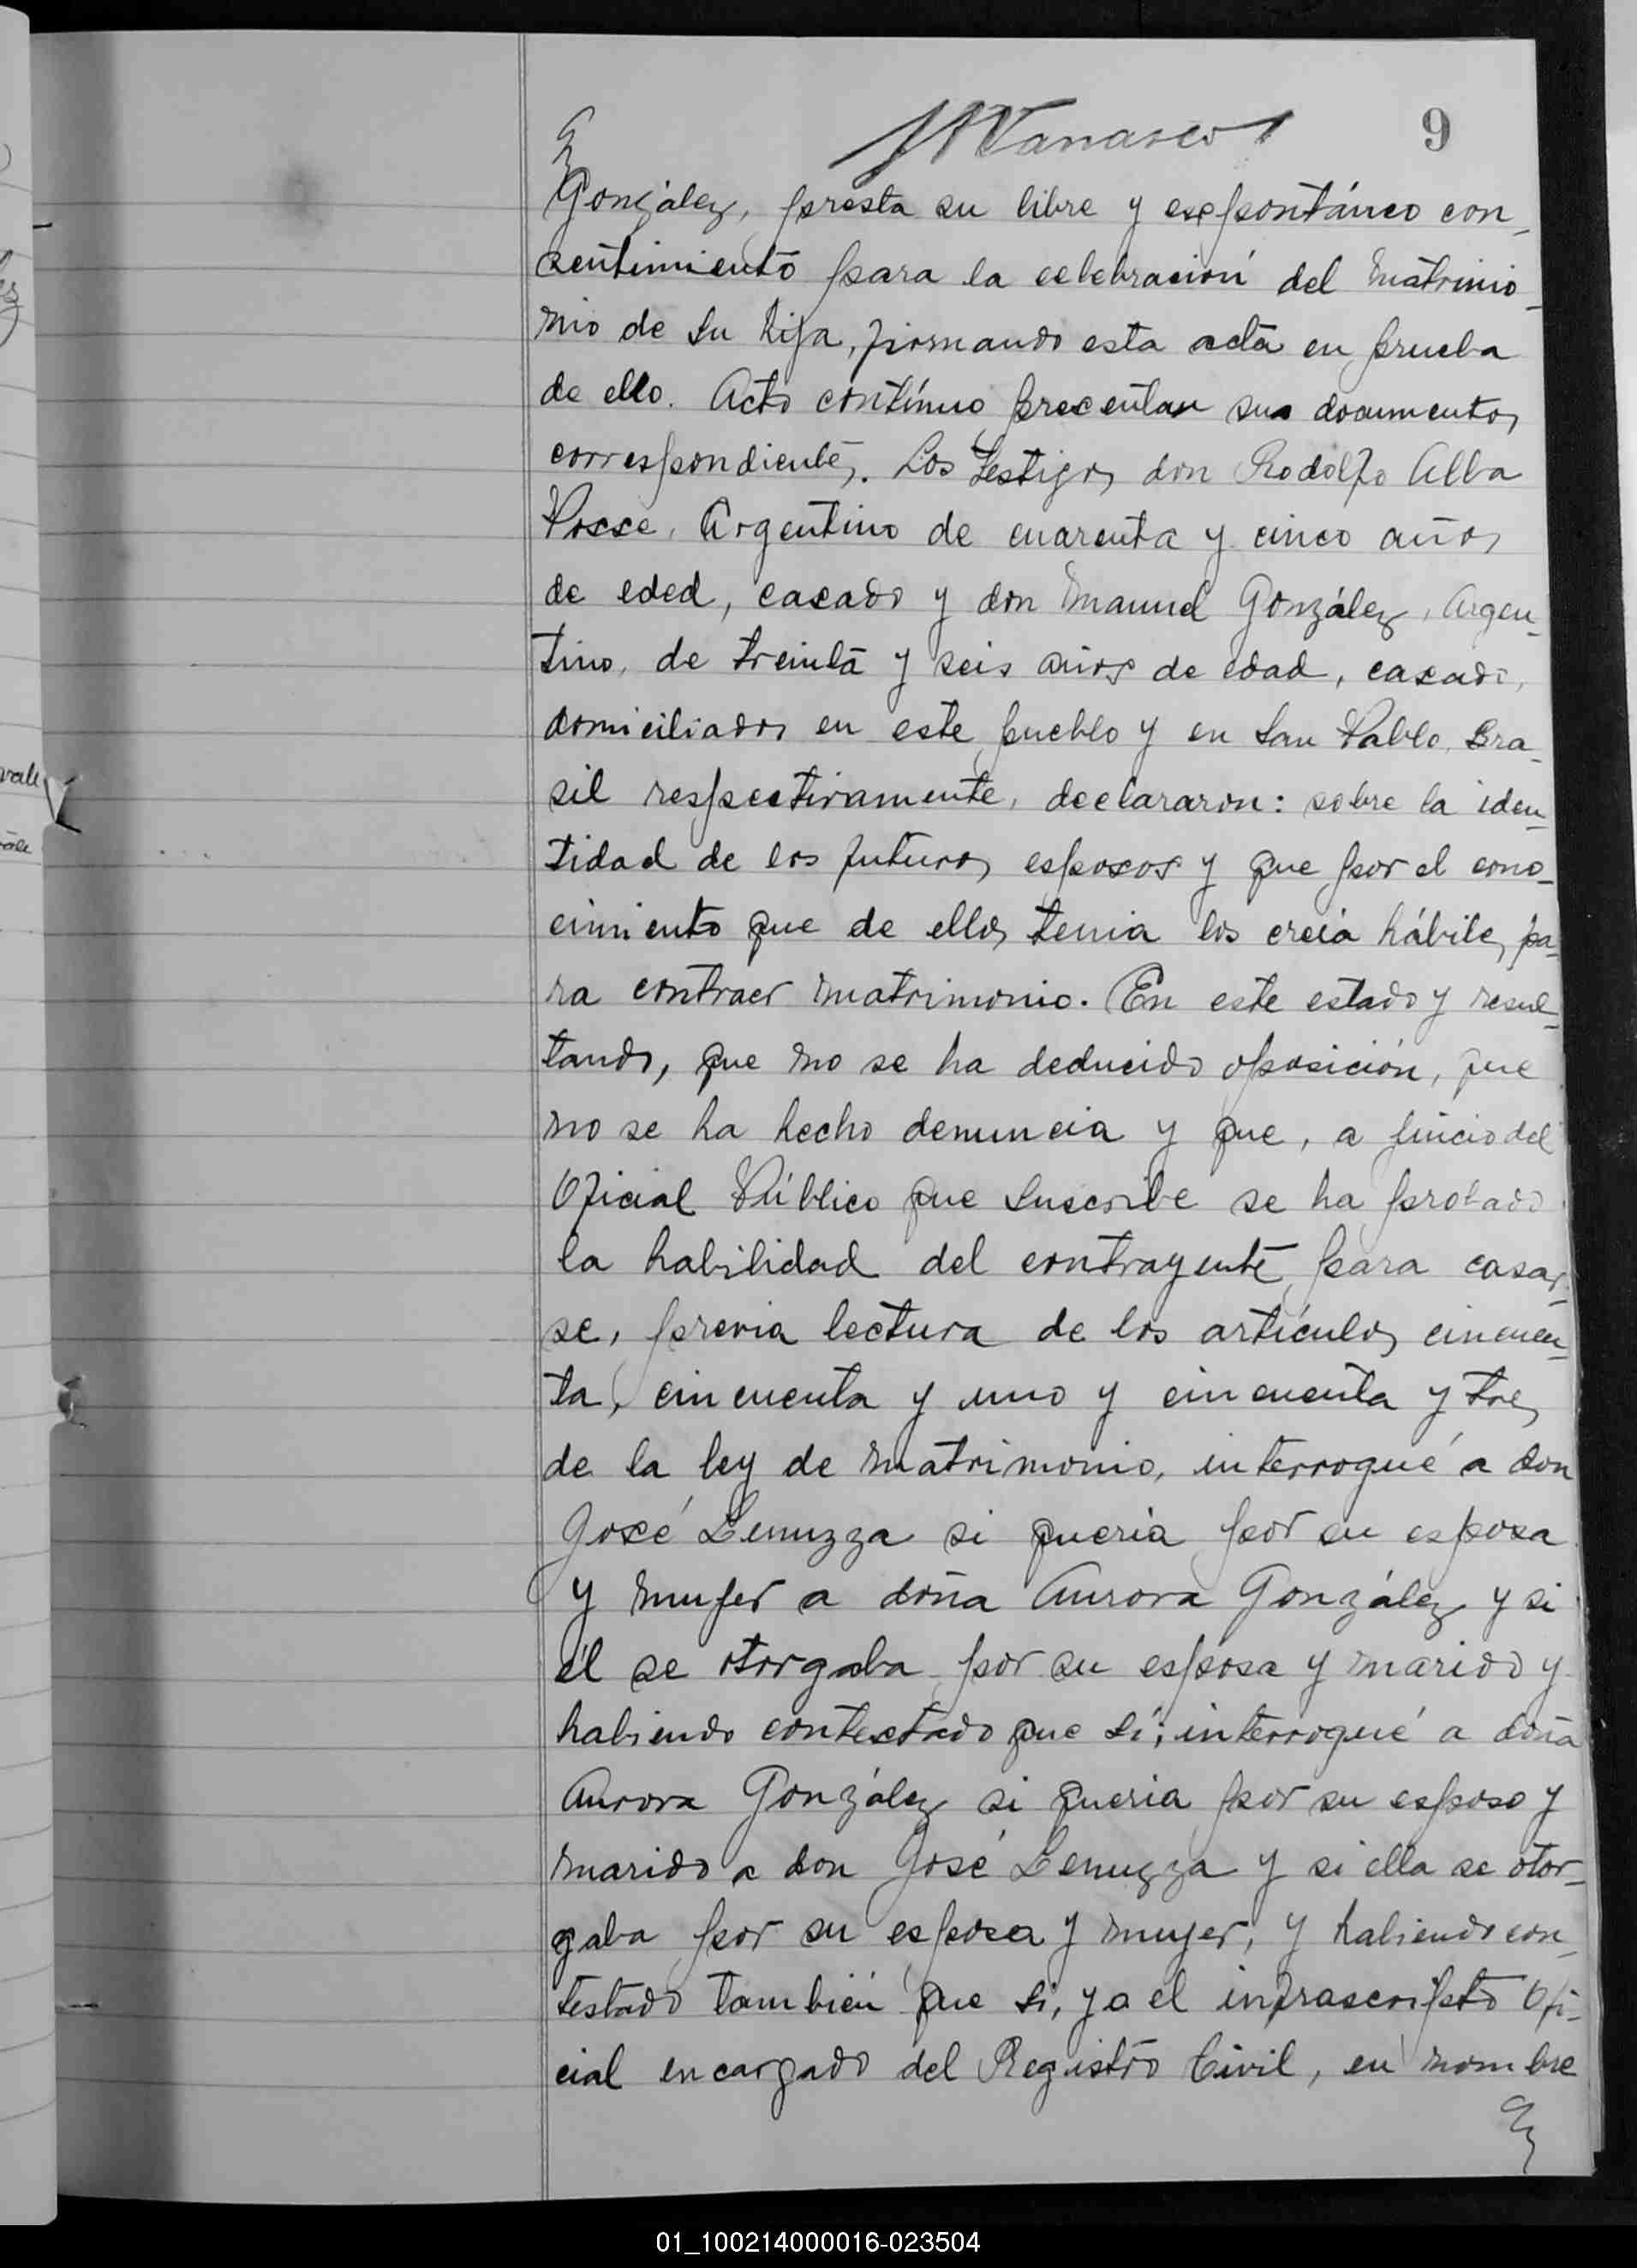 9
González, presta su libre y expontáneo con-
sentimiento para la celebración del matrimo-
nio de su hija, firmando esta acta en prueba
de ello. Acto contínuo presentan sus documentos
correspondientes. Los testigos don Rodolfo Alba
Posse, Argentino de cuarenta y cinco años
de eded, casado y don Manuel González, Argen-
tino, de treinta y seis años de edad, casado,
domiciliados en este pueblo y en San Pablo, Bra-
sil respectivamente, declararon: sobre la iden-
tidad de los futuros esposos y que por el cono-
cimiento que de ellos tenia los creía hábiles pa-
ra contraer matrimonio. En este estado y resul-
tando, que no se ha deducido oposición, que
no se ha hecho denuncia y que, a juicio del
Oficial Público que suscribe se ha probado
la habilidad del contrayente para casar-
se, previa lectura de los artículos cincuen-
ta, cincuenta y uno y cincuenta y tres
de la ley de matrimonio, interrogué a don
José Lenuzza si queria por su esposa
y mujer a doña Aurora González y si
él se otorgaba por su esposa y marido y
habiendo contestado que sí; interrogué a doña
Aurora González si queria por su esposo y
marido a don José Lenuzza y si ella se otor-
gaba por su esposa y mujer, y habiendo con-
testado también que si, yo el infrascripto Ofi-
cial encargado del Registro Civil, en nombre
01_100214000016-023504